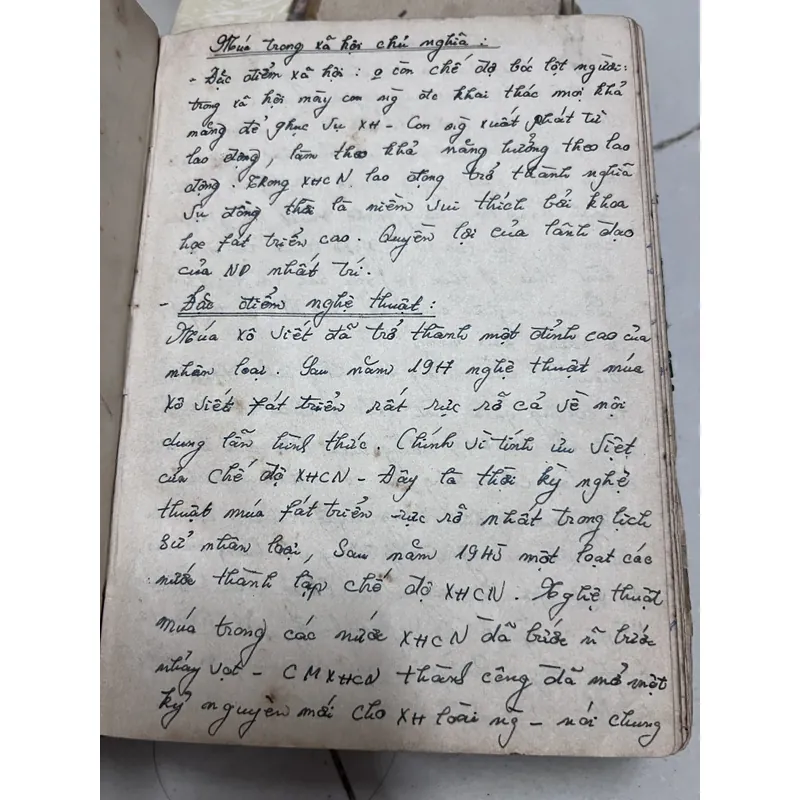 Múa trong xã hội chủ nghĩa :
- Đặc điểm xã hội : o còn chế độ bóc lột người:
trong xã hội này con ng đc khai thác mọi khả
năng để phục vụ XH - Con ng xuất phát từ
lao động, làm theo khả năng hưởng theo lao
động. Trong XHCN lao động trở thành nghĩa
vụ đồng thời là niềm vui thích bởi khoa
học fát triển cao. Quyền lợi của lãnh đạo
của ND nhất trí.
- Đặc điểm nghệ thuật :
Múa Xô Viết đã trở thành một đỉnh cao của
nhân loại. Sau năm 1917 nghệ thuật múa
Xô Viết fát triển rất rực rỡ cả về nội
dung lẫn hình thức. Chính vì tính ưu việt
của chế độ XHCN - Đây là thời kỳ nghệ
thuật múa fát triển rực rỡ nhất trong lịch
sử nhân loại, Sau năm 1945 một loạt các
nước thành lập chế độ XHCN. Nghệ thuật
múa trong các nước XHCN đã bước n bước
nhảy vọt - CMXHCN thành công đã mở một
kỷ nguyên mới cho XH loài ng - nói chung